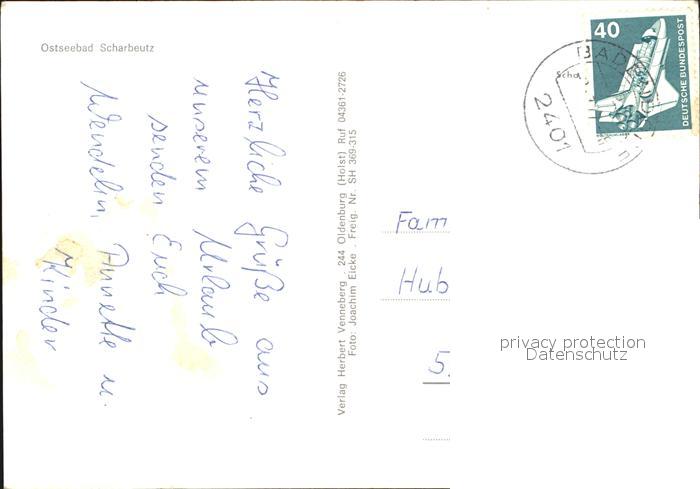 Ostseebad Scharbeutz
Herzliche Grüße aus
unserem Urlaub
senden Euch
Wendelin, Annette u.
Kinder
Verlag Herbert Venneberg . 244 Oldenburg (Holst) Ruf 04361-2726
Foto: Joachim Eicke . Freig. Nr. SH 369-315
Fam
Hub
5.
40
DEUTSCHE BUNDESPOST
2401
privacy protection
Datenschutz